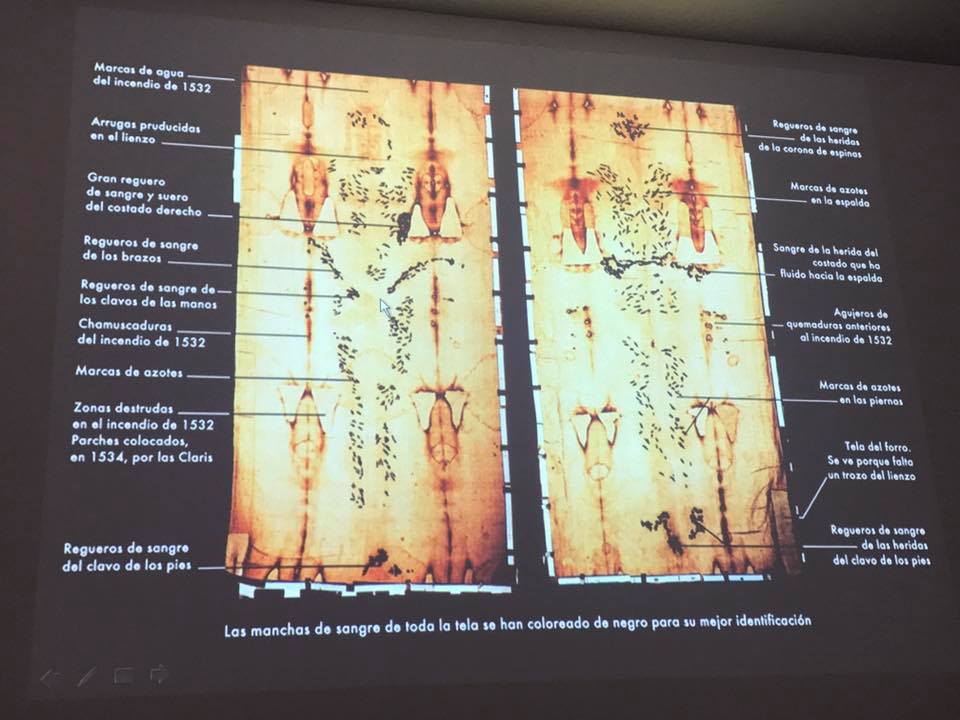 Marcas de agua
del incendio de 1532
Arrugas pruducidas
en el lienzo
Gran reguero
de sangre y suero
del costado derecho
Regueros de sangre
de los brazos
Regueros de sangre de
los clavos de las manos
Chamuscaduras
del incendio de 1532
Marcas de azotes
Zonas destrudas
en el incendio de 1532
Parches colocados,
en 1534, por las Claris
Regueros de sangre
del clavo de los pies
Regueros de sangre
de las heridas
de la corona de espinas
Marcas de azotes
en la espalda
Sangre de la herida del
costado que ha
fluido hacia la espalda
Agujeros de
quemaduras anteriores
al incendio de 1532
Marcas de azotes
en las piernas
Tela del forro.
Se ve porque falta
un trozo del lienzo
Regueros de sangre
de las heridas
del clavo de los pies
Las manchas de sangre de toda la tela se han coloreado de negro para su mejor identificación